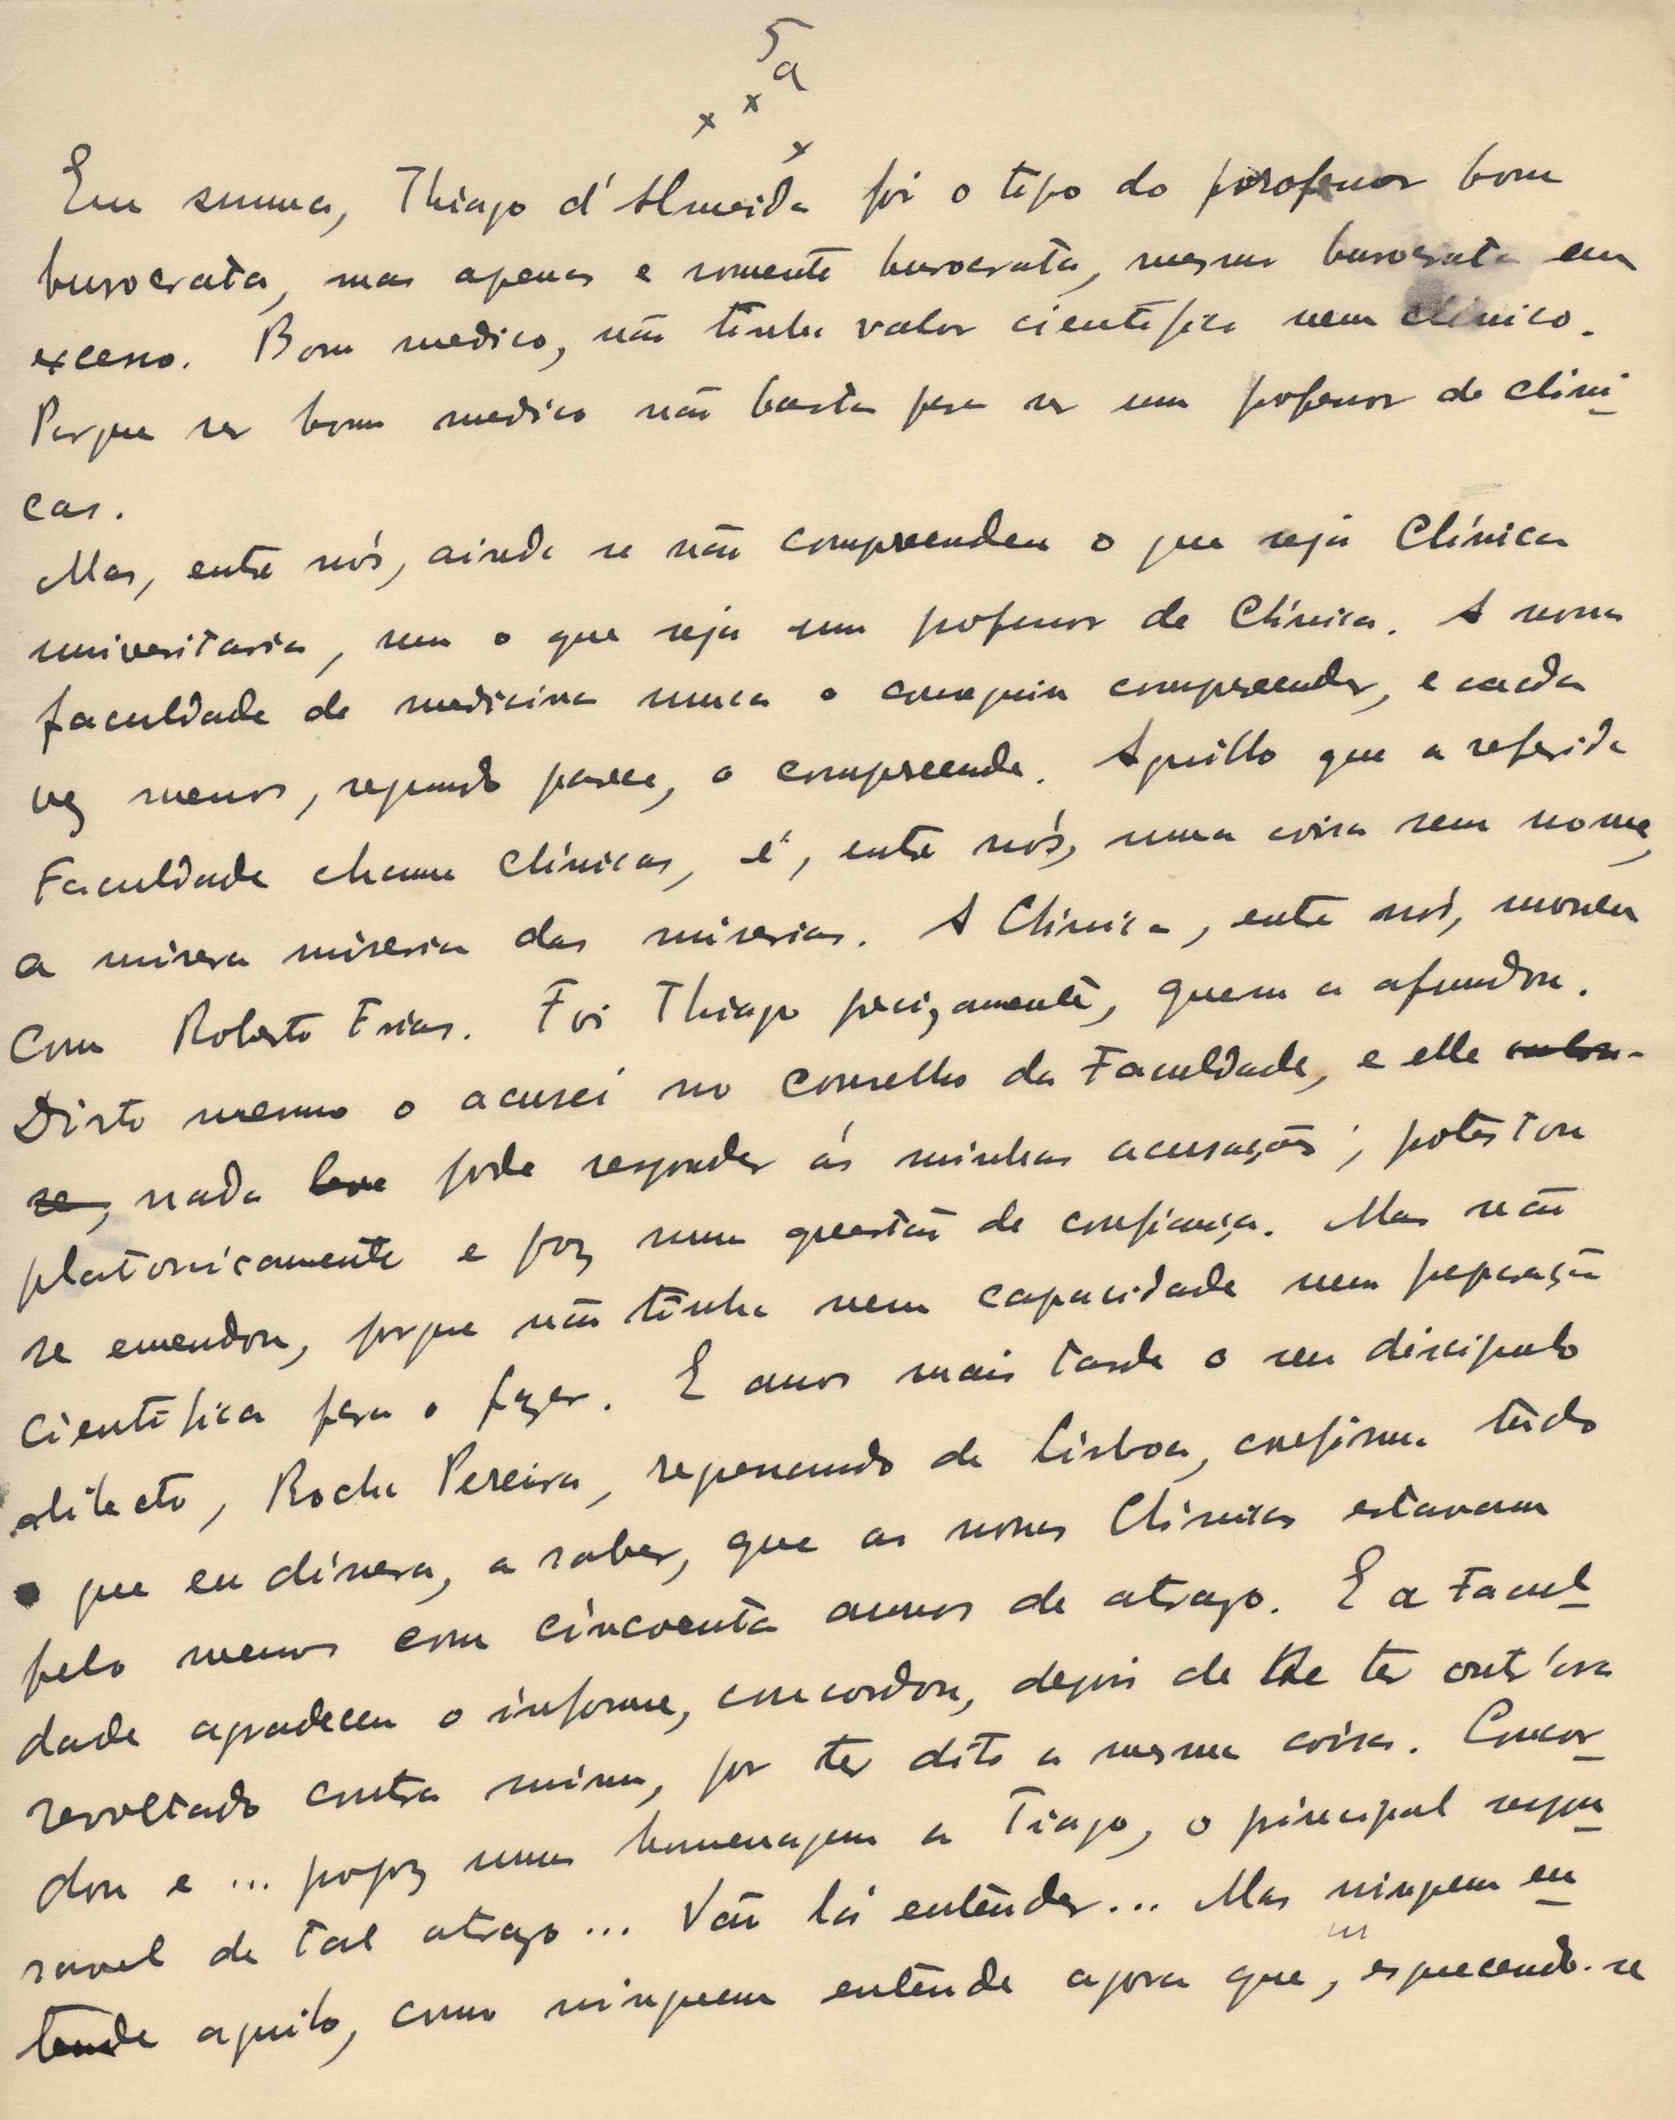 5
a
x x
x
Em summa, Thiago d'Almeida foi o tipo do professor bom
burocrata, mas apenas e somente burocrata, mesmo burocrata em
excesso. Bom medico, não tinha valor cientifico nem clinico.
Porque ser bom medico não basta para ser um professor de clini-
cas.
Mas, entre nós, ainda se não comprendeu o que seja Clínica
universitaria, nem o que seja um professor de Clínica. A nossa
faculdade de medicina nunca o conseguiu comprender, e cada
vez menos, segundo parece, o comprende. Aquillo que a referida
Faculdade chama Clínicas, é, entre nós, uma coisa sem nome,
a misera miseria das miserias. A Clínica, entre nós, morreu
com Roberto Frias. Foi Thiago precizamente, quem a afundou.
Disto mesmo o acusei no conselho da Faculdade, e elle
se, nada pode responder ás minhas acusações; protestou
platonicamente e poz uma questão de confiança. Mas não
se emendou, porque não tinha nem capacidade nem preparação
cientifica para o fazer. E anos mais tarde o seu discipulo
dilecto, Rocha Pereira, regressando de Lisboa, confirma tudo
o que eu dissera, a saber, que as nossas Clínicas estavam
pelo menos com cincoenta annos de atrazo. E a Facul-
dade agradeceu o informe, concordou, depois de se ter outr'ora
revoltado contra mim, por ter dito a mesma coisa. Concor-
dou e ... propoz uma homenagem a Tiago, o principal respon-
savel de tal atrazo... Vão lá entender... Mas ninguem en-
tende aquilo, como ninguem entende agora que, esquecendo-se